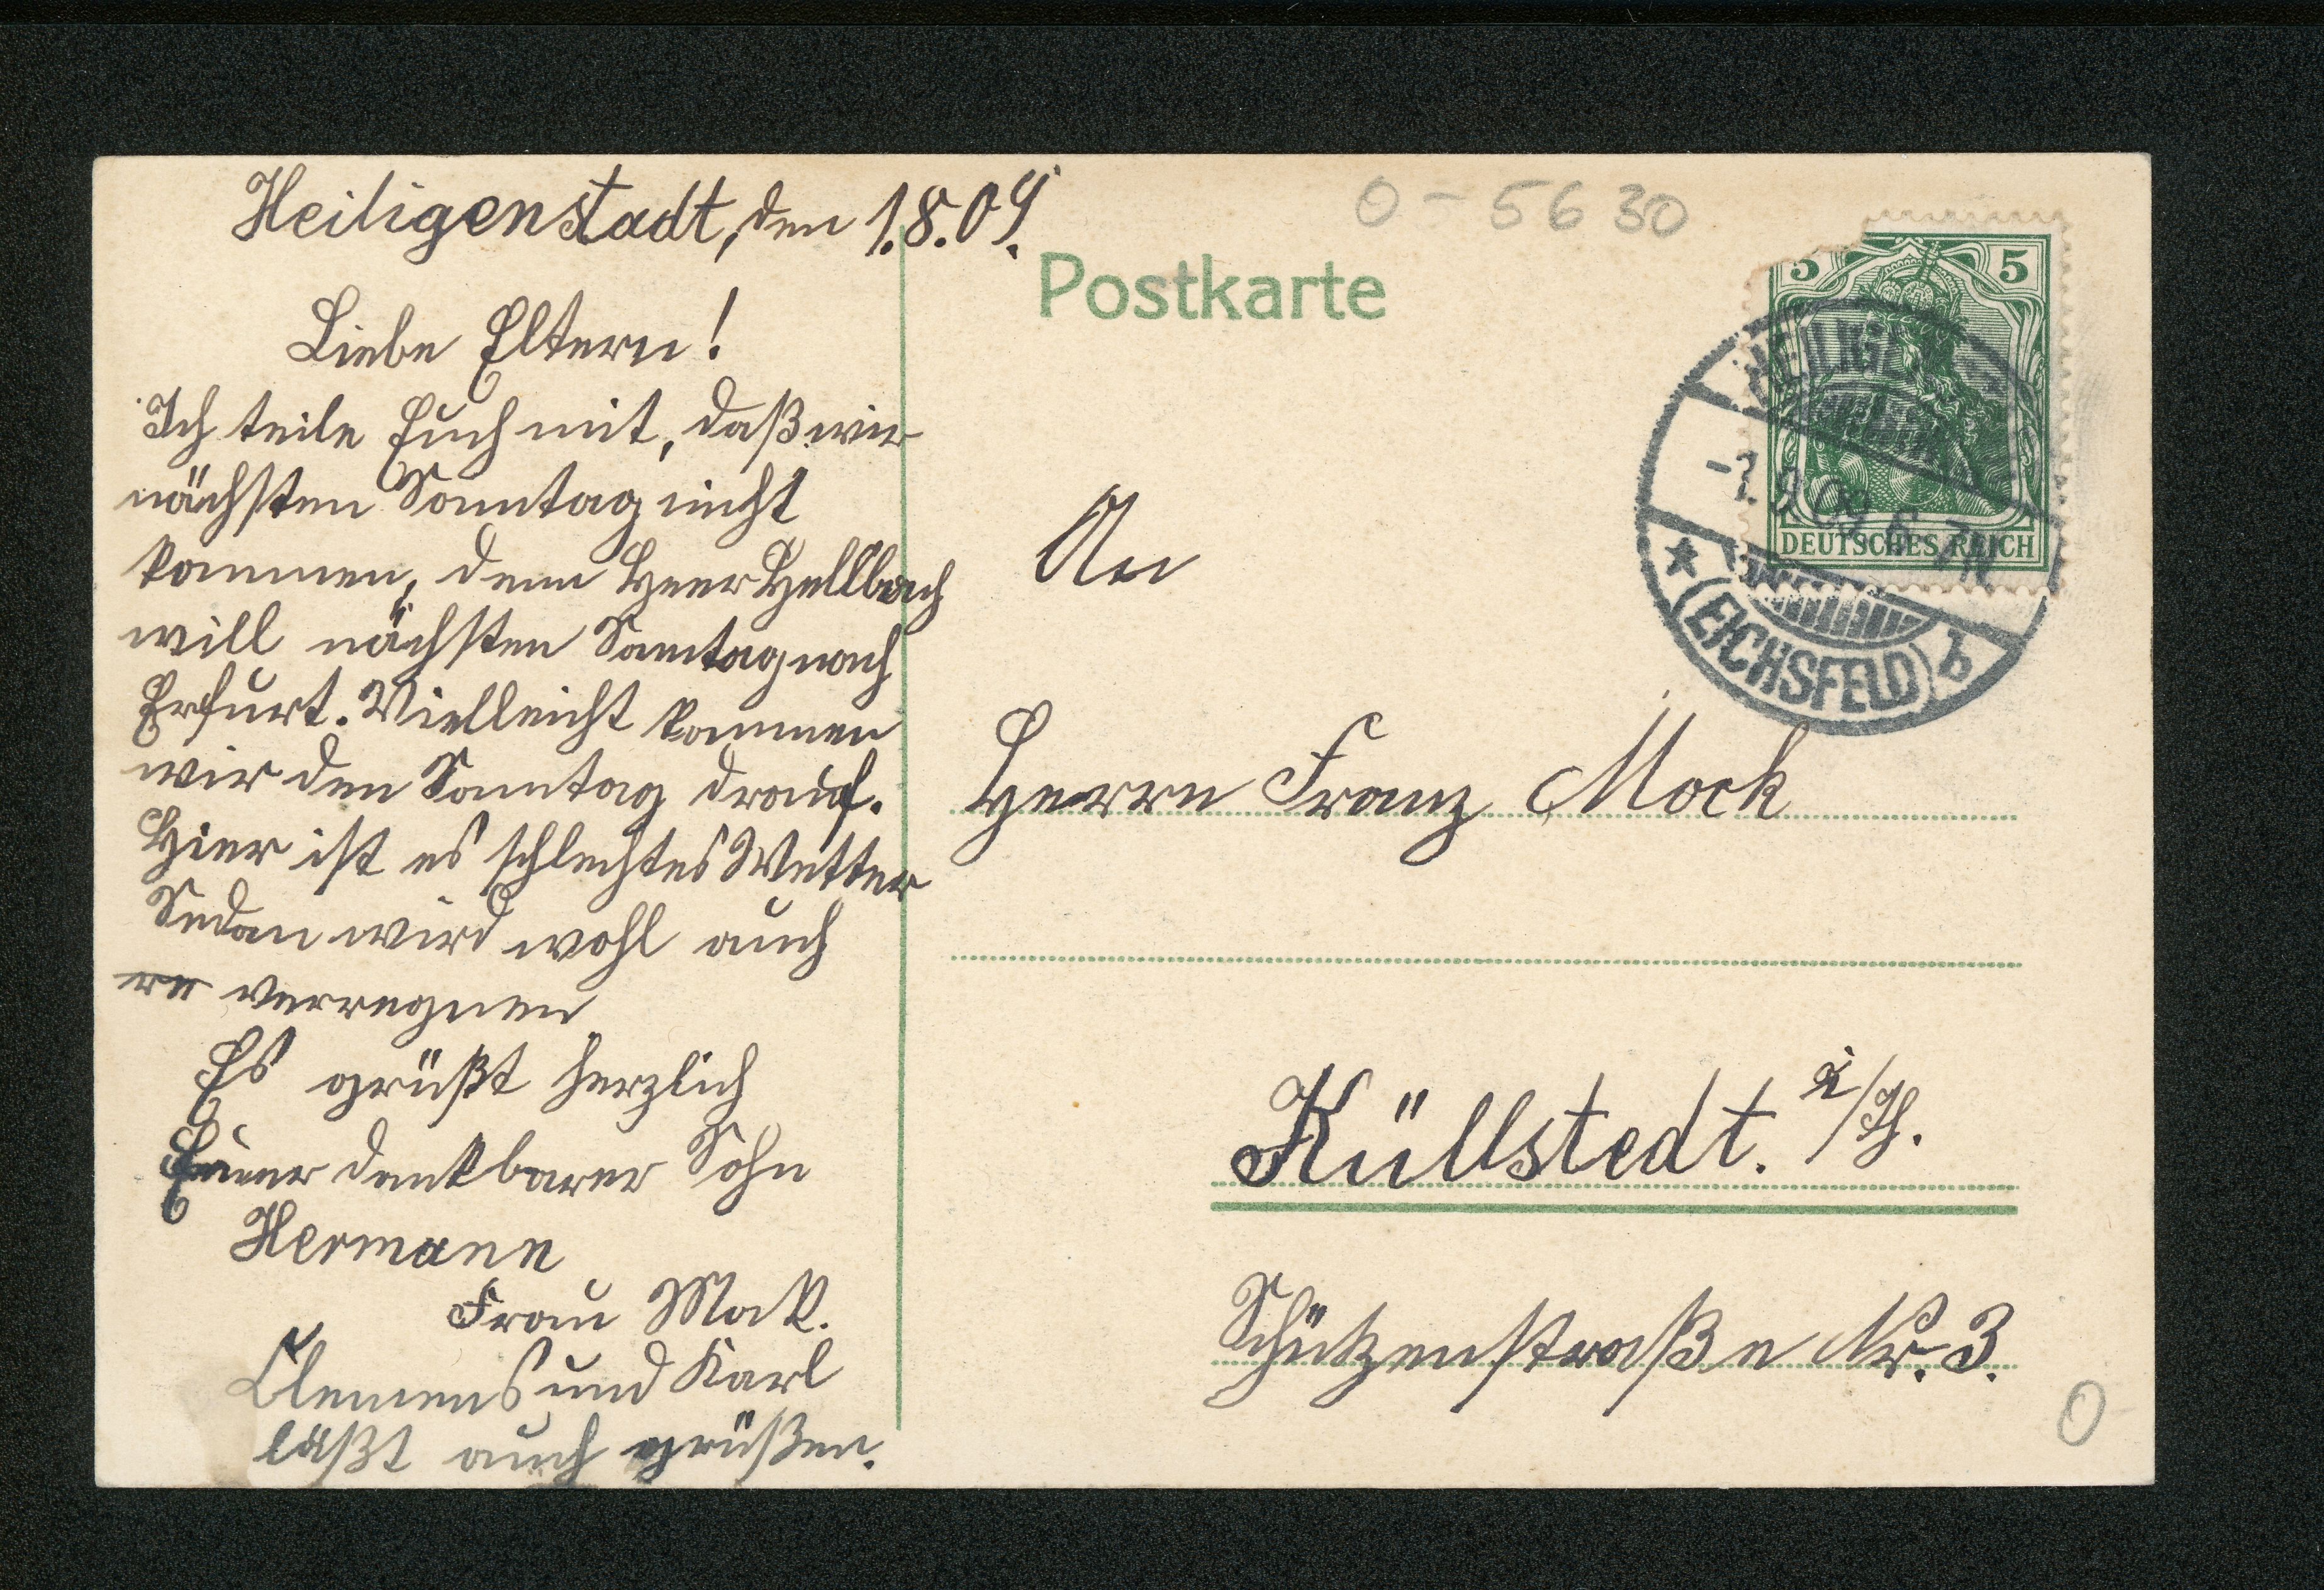 Heiligenstadt, den 1.8.09.
Liebe Eltern!
Ich teile Euch mit, daß wir
nächsten Sonntag nicht
kommen, denn Herr Hellbach
will nächsten Samtag nach
Erfurt. Vielleicht kommen
wir den Sonntag drauf.
Hier ist es schlechtes Wetter
Sedan wird wohl auch
verregnen
Es grüßt herzlich
Euer dankbarer Sohn
Hermann
Frau Mak.
Clemens und Karl
läßt auch grüßen.
0-5630
Postkarte
5 5
DEUTSCHES REICH
(EICHSFELD) b
An
Herrn Franz Mock
Küllstedt. i/Th.
Schützenstraße Nr. 3.
0